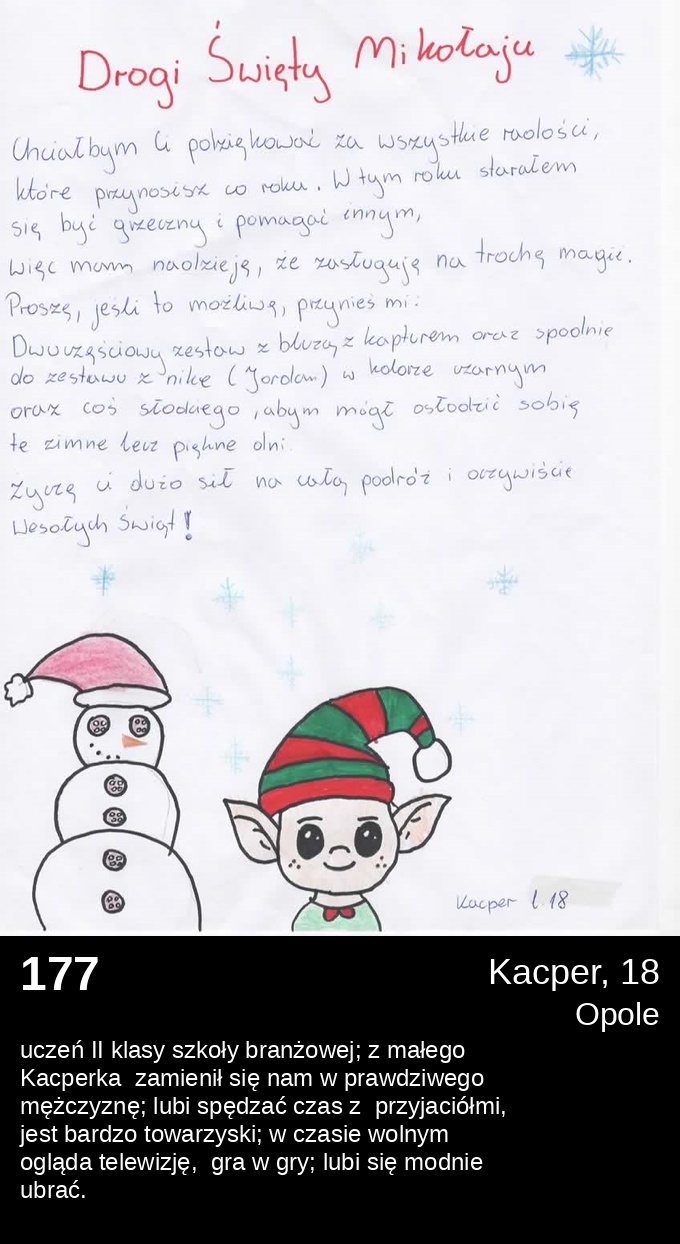 Drogi Święty Mikołaju
Chciałbym Ci podziękować za wszystkie radości,
które przynosisz co roku. W tym roku starałem
się być grzeczny i pomagać innym,
więc mam nadzieję, że zasługuję na trochę magii.
Proszę, jeśli to możliwe, przynieś mi:
Dwuczęściowy zestaw z bluzą z kapturem oraz spodnie
do zestawu z nike (Jordan) w kolorze czarnym
oraz coś słodkiego, abym mógł osłodzić sobie
te zimne lecz piękne dni.
Życzę ci dużo sił na całą podróż i oczywiście
Wesołych Świąt!
Kacper l. 18
177
Kacper, 18
Opole
uczeń II klasy szkoły branżowej; z małego
Kacperka zamienił się nam w prawdziwego
mężczyznę; lubi spędzać czas z przyjaciółmi,
jest bardzo towarzyski; w czasie wolnym
ogląda telewizję, gra w gry; lubi się modnie
ubrać.